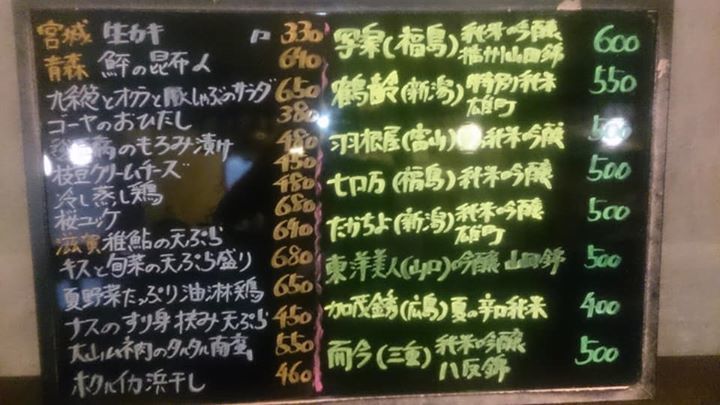 宮城 生カキ P 330
青森 鮃の昆布〆 640
九条葱とオクラと豚しゃぶのサラダ 650
ゴーヤのおひたし 380
のもろみ漬け 480
枝豆クリームチーズ 450
冷し蒸し鶏 480
桜ユッケ 680
滋賀 稚鮎の天ぷら 640
キスと旬菜の天ぷら盛り 680
夏野菜たっぷり油淋鶏 650
ナスのすり身挟み天ぷら 450
大山ムネ肉のタルタル南蛮 550
ホタルイカ浜干し 460
写楽(福島) 純米吟醸 播州山田錦 600
鶴齢(新潟) 特別純米 雄町 550
羽根屋(富山) 純米吟醸 500
七ロ万(福島) 純米吟醸 500
たかちよ(新潟) 純米吟醸 雄町 500
東洋美人(山口) 吟醸 山田錦 500
加茂錦(広島) 夏の辛口純米 400
而今(三重) 純米吟醸 八反錦 500